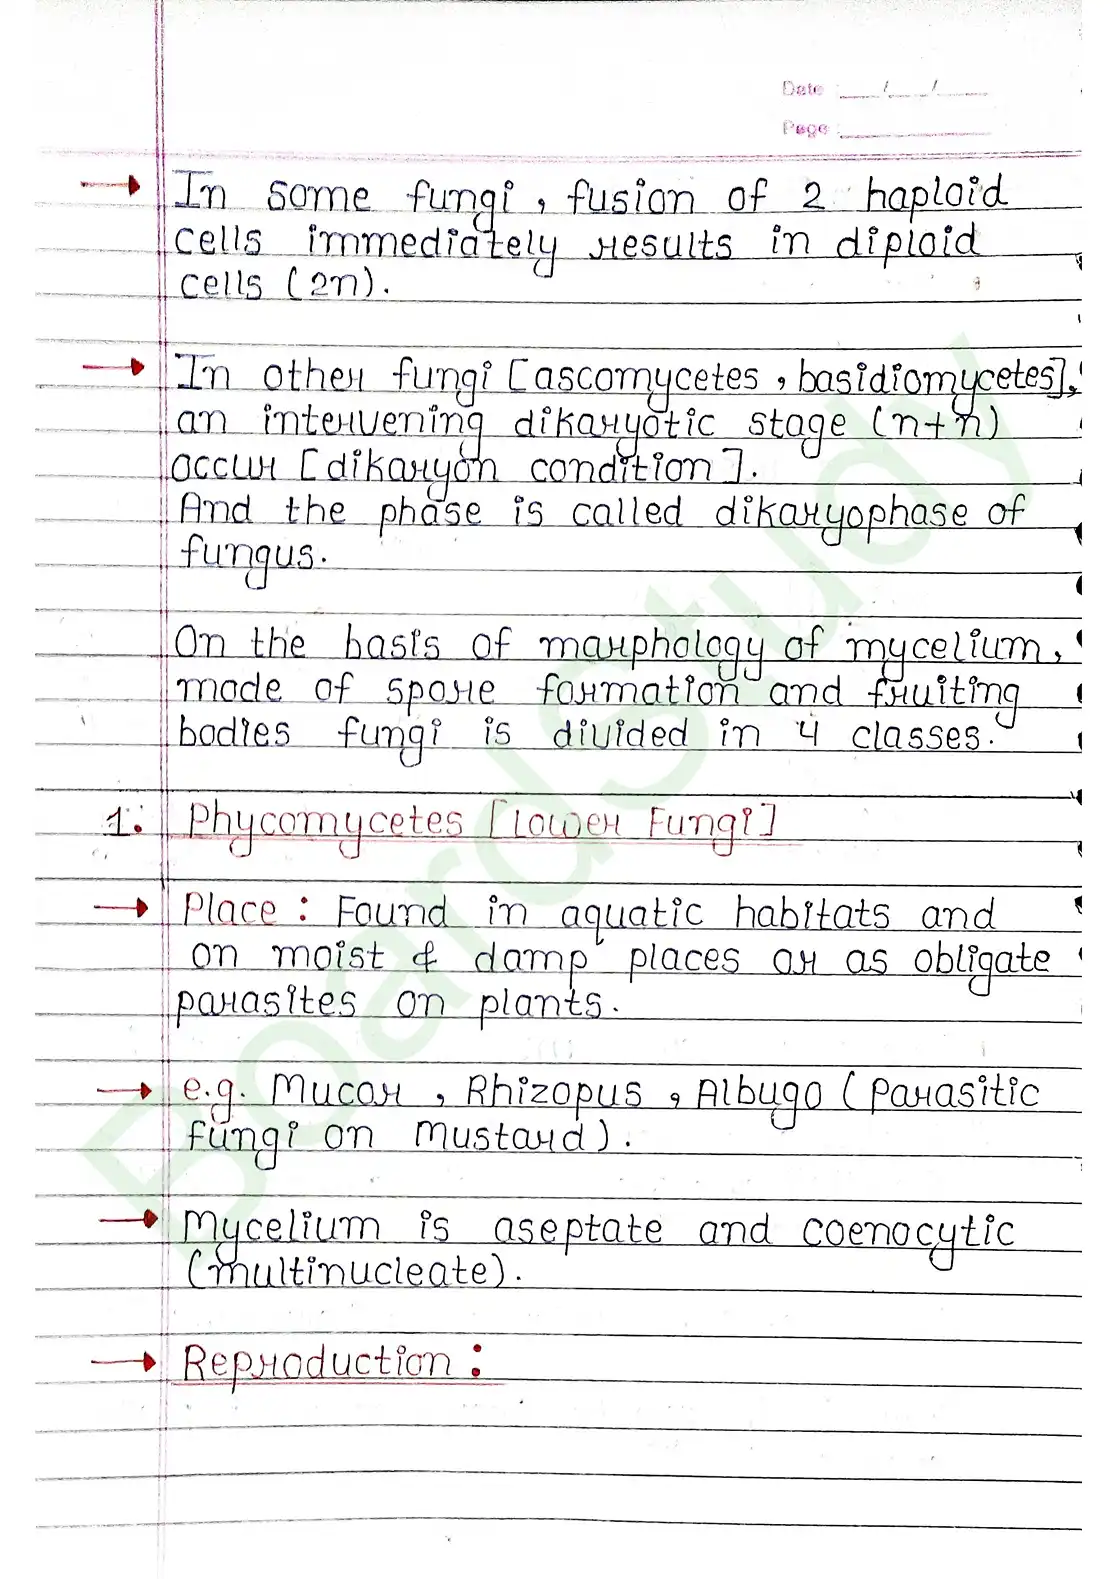 Date : __/__/__
Page :
→ In some fungi, fusion of 2 haploid
cells immediately results in diploid
cells (2n).
→ In other fungi [ascomycetes, basidiomycetes],
an intervening dikaryotic stage (n+n)
occur [dikaryon condition].
And the phase is called dikaryophase of
fungus.
On the basis of morphology of mycelium,
mode of spore formation and fruiting
bodies fungi is divided in 4 classes.
1. Phycomycetes [Lower Fungi]
→ Place : Found in aquatic habitats and
on moist & damp places or as obligate
parasites on plants.
→ e.g. Mucor, Rhizopus, Albugo (Parasitic
fungi on Mustard).
→ Mycelium is aseptate and coenocytic
(multinucleate).
→ Reproduction :
BoardStudy